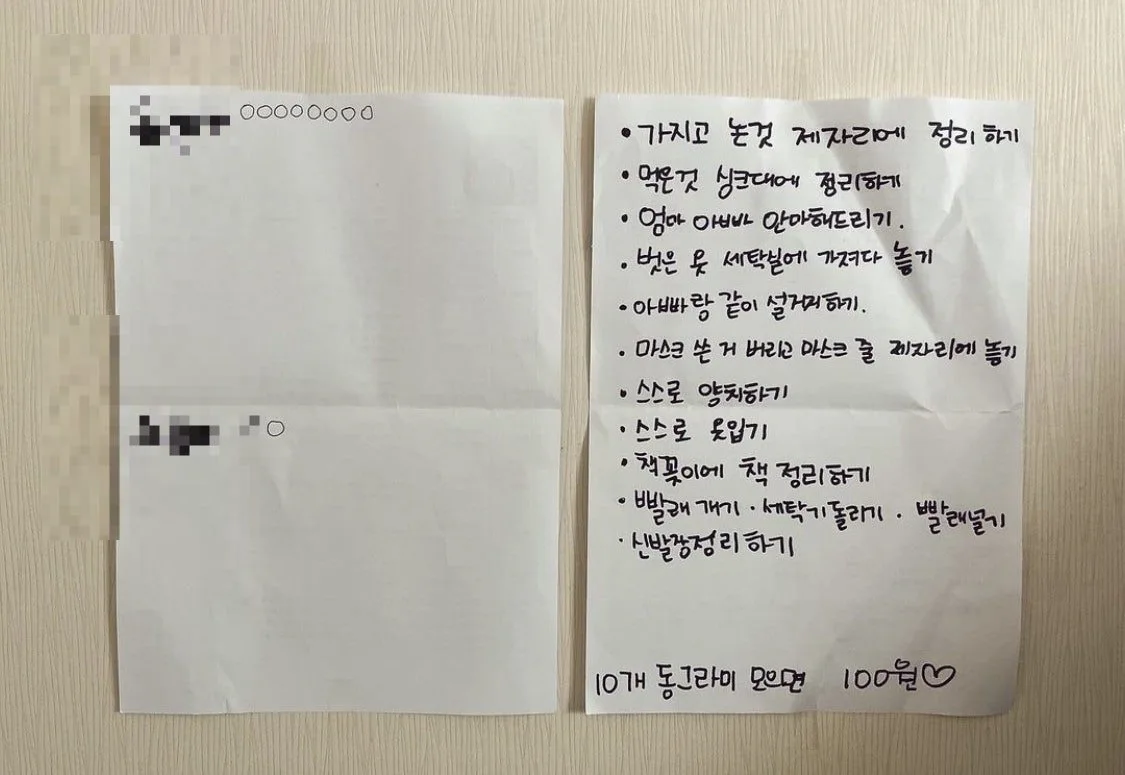 ○○○○○○○○
○
• 가지고 논것 제자리에 정리하기
• 먹은것 싱크대에 정리하기
• 엄마 아빠 안마해드리기.
• 벗은 옷 세탁실에 가져다 놓기
• 아빠랑 같이 설거지하기.
• 마스크 쓴 거 버리고 마스크 줄 제자리에 놓기
• 스스로 양치하기
• 스스로 옷입기
• 책꽂이에 책 정리하기
• 빨래 개기 · 세탁기돌리기 · 빨래널기
• 신발장정리하기
10개 동그라미 모으면 100원♡